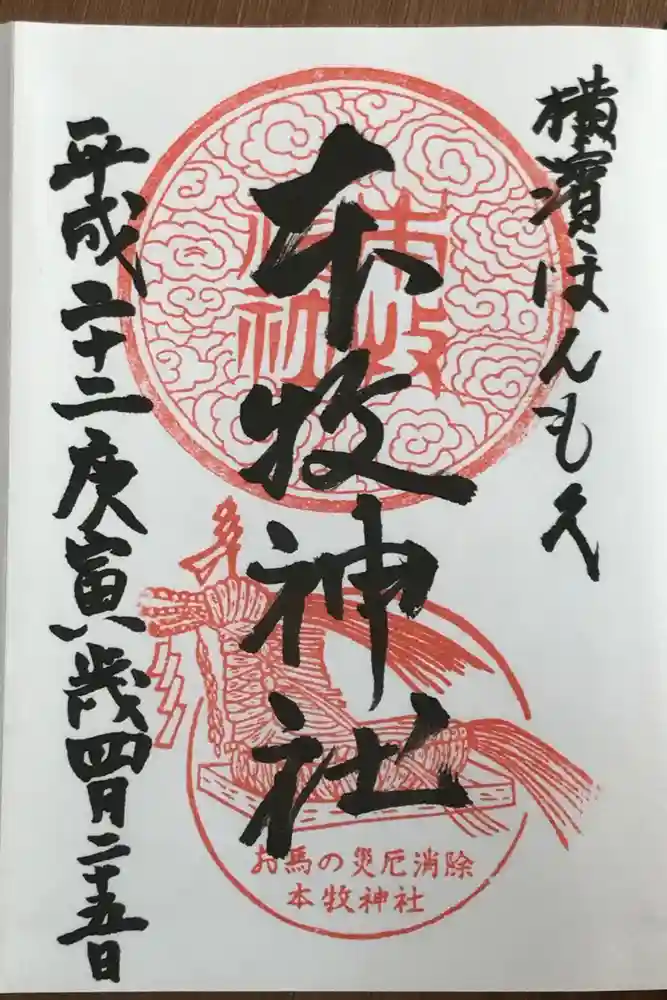 横濱ほんもく
本牧神社
本牧神社
平成二十二庚寅歳四月二十五日
お馬の災厄消除
本牧神社